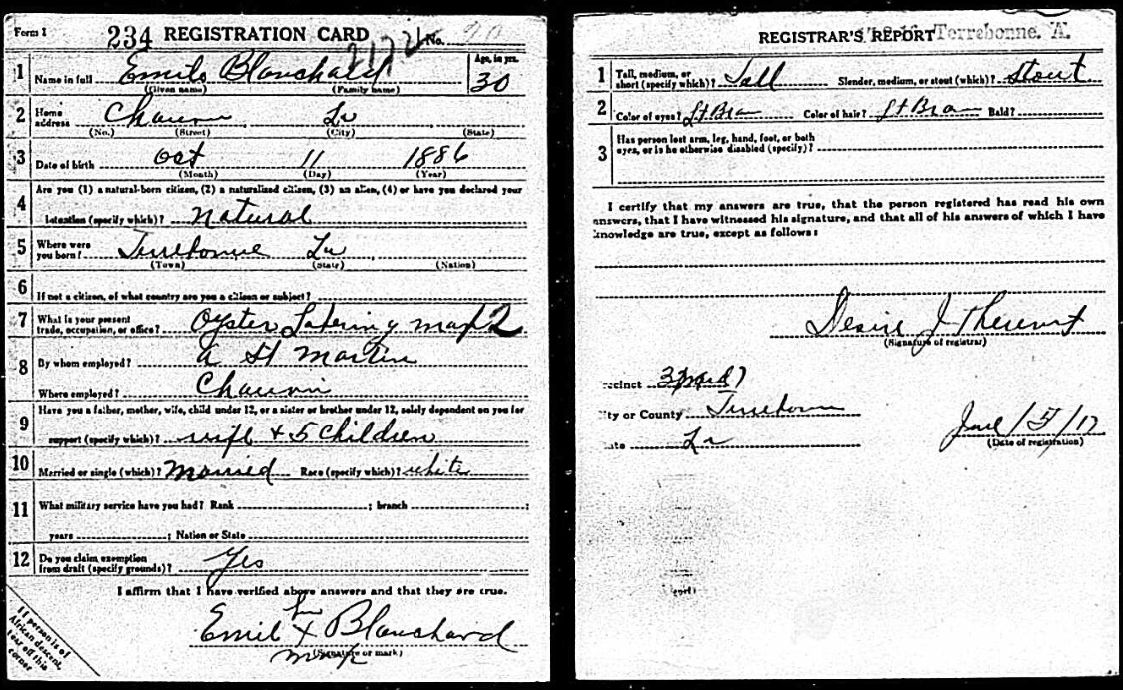 Form 1 234 REGISTRATION CARD No.
1 Name in full Emile Blanchard Age, in yrs. 30
(Given name) (Family name)
2 Home address Chauvin La
(No.) (Street) (City) (State)
3 Date of birth Oct 11 1886
(Month) (Day) (Year)
4 Are you (1) a natural-born citizen, (2) a naturalized citizen, (3) an alien, (4) or have you declared your
intention (specify which)? Natural
5 Where were you born? Terrebonne La
(Town) (State) (Nation)
6 If not a citizen, of what country are you a citizen or subject?
7 What is your present trade, occupation, or office? Oyster 2
8 By whom employed? A St Martin
Where employed? Chauvin
9 Have you a father, mother, wife, child under 12, or a sister or brother under 12, solely dependent on you for
support (specify which)? wife + 5 children
10 Married or single (which)? Married Race (specify which)? white
11 What military service have you had? Rank ; branch ;
years ; Nation or State
12 Do you claim exemption from draft (specify grounds)? Yes
I affirm that I have verified above answers and that they are true.
his
Emil X Blanchard
mark (Signature or mark)
If person is of
African descent,
tear off this
corner
REGISTRAR'S REPORT Terrebonne. A.
1 Tall, medium, or short (specify which)? Tall Slender, medium, or stout (which)? Stout
2 Color of eyes? Lt Brown Color of hair? Lt Brown Bald?
3 Has person lost arm, leg, hand, foot, or both
eyes, or is he otherwise disabled (specify)?
I certify that my answers are true, that the person registered has read his own
answers, that I have witnessed his signature, and that all of his answers of which I have
knowledge are true, except as follows:
Desire J Theriot
(Signature of registrar)
ecinct 3 ward 7
ity or County Terrebonne
ate La
June / 5 / 17
(Date of registration)